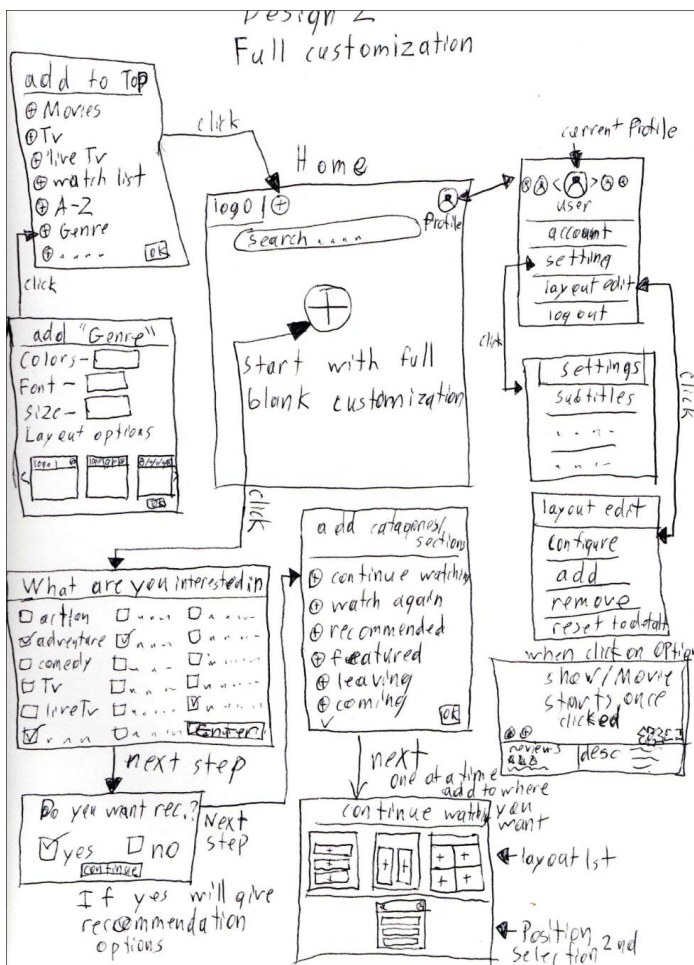 Design 2
Full customization
add to Top
Movies
Tv
live Tv
watch list
A-Z
Genre
....
OK
click
click
add "Genre"
Colors -
Font -
Size -
Layout options
logo
OK
Home
logo |
Profile
Search ....
start with full
blank customization
click
current Profile
user
account
setting
layout edit
log out
click
click
settings
subtitles
layout edit
configure
add
remove
reset to defalt
What are you interested in
action
adventure
comedy
Tv
live Tv
Enter
next step
Do you want rec.?
yes
no
continue
Next
step
If yes will give
recommendation
options
add catagories/
sections
continue watching
watch again
recommended
featured
leaving
coming
OK
next
one at a time
add to where
you
want
continue watching
layout 1st
Position
selection 2nd
when click on option
show/Movie
starts once
clicked
reviews
desc